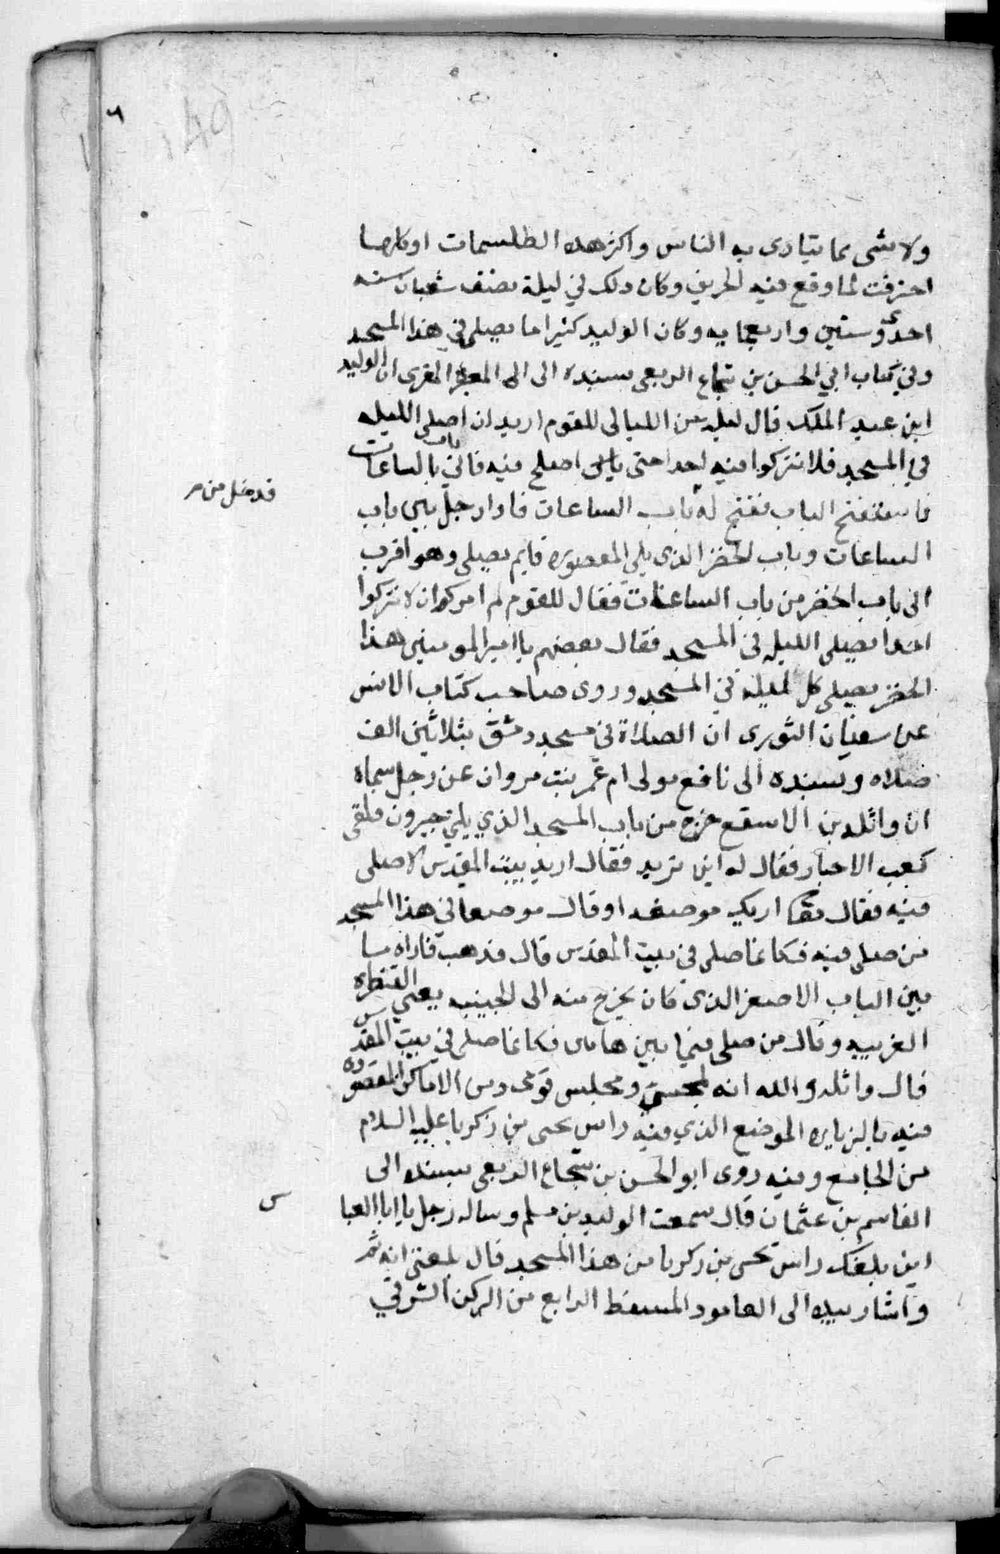 ولا شى مما يتادى به الناس واكثر هده الطلسمات اوكلها
احترقت لما وقع فيه الحريق وكان دلك في ليلة نصف شعبان سنه
احدى وستين واربعمايه وكان الوليد كثيرا ما يصلى في هذا المسجد
وفي كتاب ابي الحسن بن شجاع الربعى بسنده الى الى المغيرة المقرى ان الوليد
ابن عبد الملك قال ليله من الليالى للقوم اريد ان اصلى الليله
في المسجد فلا تتركوا فيه احدا حتى اصلى فيه فاتي باب الساعات
فاستفتح الباب ففتح له باب الساعات فادا رجل بين باب
قد دخل من
الساعات وباب الخضر الذى يلى المقصوره قايم يصلى وهو اقرب
الى باب الخضر من باب الساعات فقال للقوم الم امركم ان لا تتركوا
احدا يصلى الليله في المسجد فقال بعضهم يا امير المومنين هذا
الخضر يصلى كل ليله في المسجد وروى صاحب كتاب الانس
عن سفيان الثورى ان الصلاة في مسجد دمشق بثلاثين الف
صلاه وبسنده الى نافع مولى ام عمر بنت مروان عن رجل سماه
ان واثله بن الاسقع خرج من باب المسجد الذي يلي جيرون فلقى
كعب الاحبار فقال له اين تريد فقال اريد بيت المقدس لاصلى
فيه فقال تعا اريك موضعا او قال موضعا في هذا المسجد
من صلى فيه فكانما صلى في بيت المقدس قال فذهب فاراه ما
بين الباب الاصغر الذى كان يخرج منه الى الحينيه يعني القنطره
الغربيه وقال من صلى فيما بين هاتين فكانما صلى في بيت المقدس
قال واثله والله انه لمجلسي ومجلس قومى ومن الاماكن المقصوده
فيه بالزياره الموضع الذي فيه راس يحى بن زكريا عليه السلام
من الجامع وفيه روى ابو الحسن بن شجاع الربعى بسنده الى
القاسم بن عثمان قال سمعت الوليد بن مسلم وساله رجل يا ابا العبا
س
اين بلغك راس يحى بن زكريا من هذا المسجد قال بلغنى انه ثم
واشار بيده الى العامود المسفط الرابع من الركن الشرقي